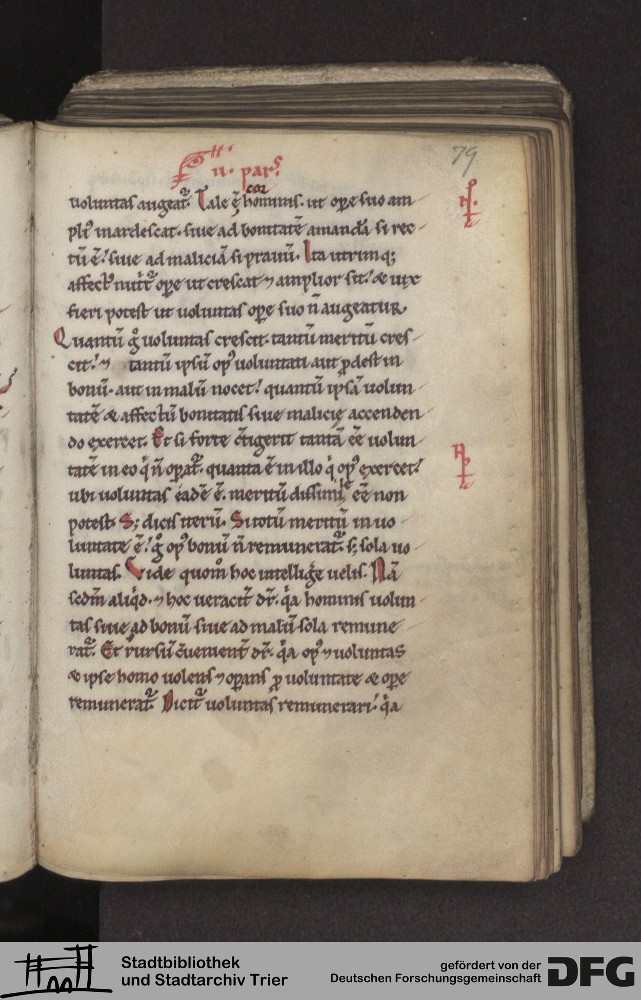 79
ii. pars
cor
uoluntas augeat᷑. Tale ē hominis. ut oꝑe suo am
pli᷒ inardescat. siue ad bonitatē amandā si rec
tū ē! siue ad maliciā si prauū. Ita utrimq;
affect᷒ nut᷑t᷑ oꝑe ut crescat ⁊ amplior sit! & uix
fieri potest ut uoluntas oꝑe suo n̄ augeatur.
Quantū gͦ uoluntas crescit. tantū meritū cres
cit! ⁊ tantū ipsū op᷒ uoluntati aut ꝓdest in
bonū. aut in malū nocet! quantū ipsā uolun
tatē & affectū bonitatis siue malicię accenden
do exercet. Et si forte ↄtigerit tantā eē uolun
tatē in eo qͥ n̄ oꝑat᷑. quanta ē in illo qͥ op᷒ exercet!
ubi uoluntas eadē ē. meritū dissimile eē non
potest. S; dicis iterū. Si totū meritū in uo
luntate ē! gͦ op᷒ bonū n̄ remunerat᷑. s; sola uo
luntas. Vide quom̄ hoc intelligͤe uelis. Nā
scdm̄ aliqͥd. ⁊ hoc ueracit᷑ dr̄. qͥa hominis uolun
tas siue ad bonū siue ad malū sola remune
rat᷑. Et rursū ↄuenient᷑ dr̄. qͥa op᷒ ⁊ uoluntas
& ipse homo uolens ⁊ operans ꝓ uoluntate & oꝑe
remunerat᷑. Dicit᷑ uoluntas remunerari! qͥa
Stadtbibliothek
und Stadtarchiv Trier
gefördert von der
Deutschen Forschungsgemeinschaft
DFG